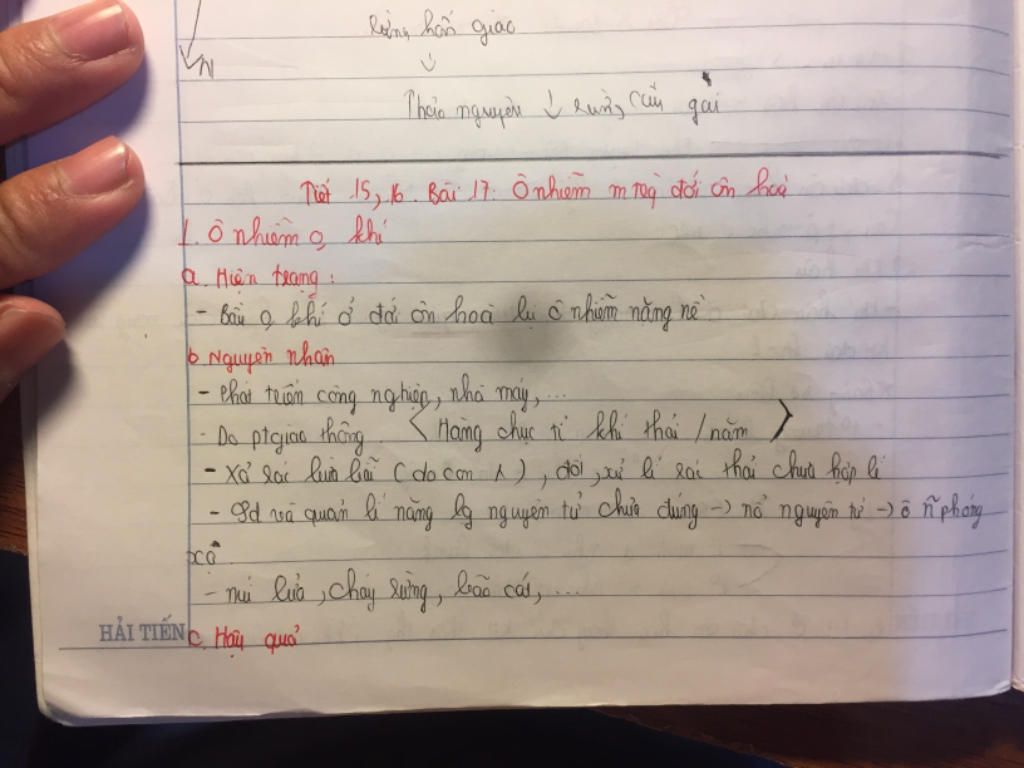 rừng hỗn giao
Thảo nguyên ↓ rừng cây gai
Tiết 15, 16. Bài 17: Ô nhiễm m trg đới ôn hoà
1. Ô nhiễm o khí
a. Hiện trạng:
- Bầu o khí ở đới ôn hoà bị ô nhiễm nặng nề
b. Nguyên nhân
- Phát triển công nghiệp, nhà máy,...
- Do ptgiao thông. < Hàng chục tỉ khí thải / năm >
- Xả rác bừa bãi (do con λ), đốt, xử lí rác thải chưa hợp lí
- Sd và quản lí năng lg nguyên tử chưa đúng → nổ nguyên tử → ô ñ phóng
xạ.
- núi lửa, cháy rừng, bão cát,...
HẢI TIẾN
c. Hậu quả